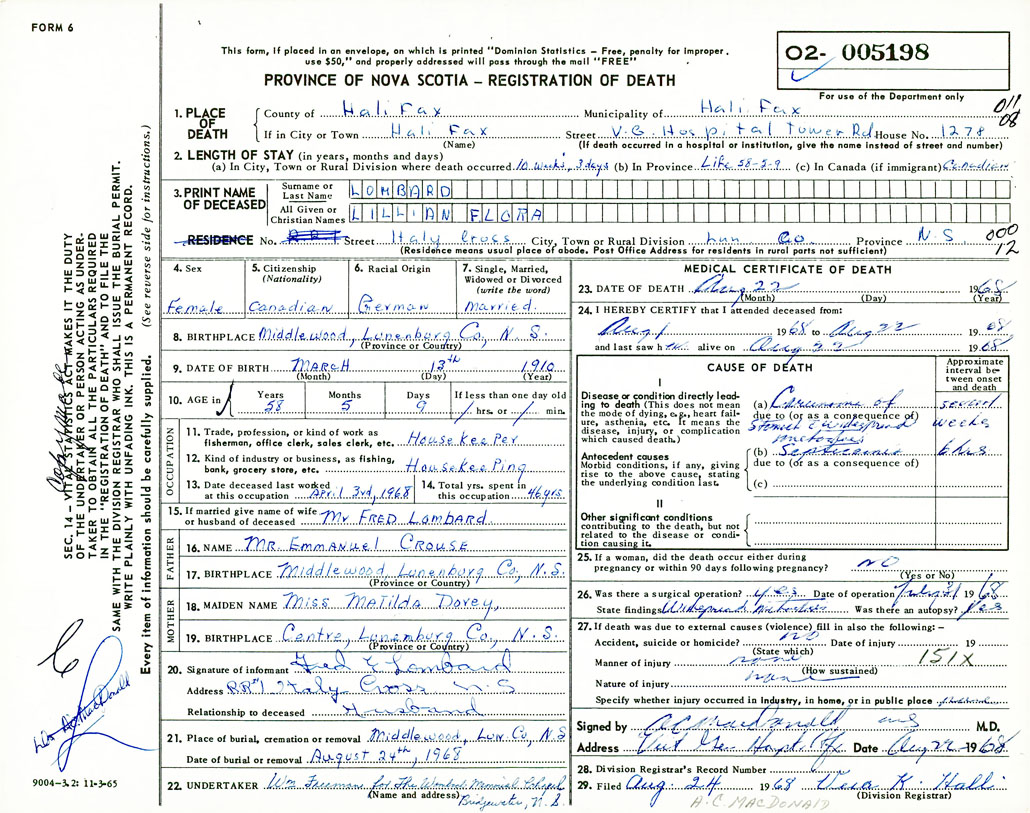 FORM 6
This form, if placed in an envelope, on which is printed "Dominion Statistics – Free, penalty for improper
use $50," and properly addressed will pass through the mail "FREE"
PROVINCE OF NOVA SCOTIA – REGISTRATION OF DEATH
02- 005198
For use of the Department only
011
08
1. PLACE OF DEATH
County of Halifax Municipality of Halifax
If in City or Town Halifax Street V.G. Hospital Tower Rd House No. 1278
(Name) (If death occurred in a hospital or institution, give the name instead of street and number)
2. LENGTH OF STAY (in years, months and days)
(a) In City, Town or Rural Division where death occurred 10 weeks, 3 days (b) In Province Life 58-5-9 (c) In Canada (if immigrant) Canadian
3. PRINT NAME OF DECEASED
Surname or Last Name LOMBARD
All Given or Christian Names LILLIAN FLORA
RESIDENCE No. Street Italy Cross City, Town or Rural Division Lun Co. Province N.S
(Residence means usual place of abode. Post Office Address for residents in rural parts not sufficient)
000
12
4. Sex
Female
5. Citizenship
(Nationality)
Canadian
6. Racial Origin
German
7. Single, Married,
Widowed or Divorced
(write the word)
Married.
8. BIRTHPLACE Middlewood, Lunenburg Co, N.S.
(Province or Country)
9. DATE OF BIRTH MARCH 13th 1910
(Month) (Day) (Year)
10. AGE in
Years Months Days If less than one day old
58 5 9 hrs. or min.
OCCUPATION
11. Trade, profession, or kind of work as
fisherman, office clerk, sales clerk, etc. Housekeeper
12. Kind of industry or business, as fishing,
bank, grocery store, etc. Housekeeping
13. Date deceased last worked
at this occupation April 3rd, 1968
14. Total yrs. spent in
this occupation 46 yrs.
15. If married give name of wife
or husband of deceased Mr FRED Lombard
FATHER
16. NAME MR. EMMANUEL CROUSE
17. BIRTHPLACE Middlewood, Lunenburg Co, N.S.
(Province or Country)
MOTHER
18. MAIDEN NAME Miss MATILDA Dorey,
19. BIRTHPLACE Centre, Lunenburg Co., N.S.
(Province or Country)
20. Signature of informant Fred E Lombard
Address RR#1 Italy Cross N.S
Relationship to deceased Husband
21. Place of burial, cremation or removal Middlewood, Lun Co, N.S
Date of burial or removal August 24th, 1968
22. UNDERTAKER Wm Freeman for The Memorial Chapel
(Name and address) Bridgewater, N.S.
MEDICAL CERTIFICATE OF DEATH
23. DATE OF DEATH Aug 22 1968
(Month) (Day) (Year)
24. I HEREBY CERTIFY that I attended deceased from:
Aug 1 1968 to Aug 22 1968
and last saw her alive on Aug 22 1968
CAUSE OF DEATH
Approximate
interval be-
tween onset
and death
I
Disease or condition directly lead-
ing to death (This does not mean
the mode of dying, e.g., heart fail-
ure, asthenia, etc. It means the
disease, injury, or complication
which caused death.)
(a) Carcinoma of several
due to (or as a consequence of) weeks
Stomach widespread
metastases
Antecedent causes
Morbid conditions, if any, giving
rise to the above cause, stating
the underlying condition last.
(b) Septicaemia 6 hrs
due to (or as a consequence of)
(c)
II
Other significant conditions
contributing to the death, but not
related to the disease or condi-
tion causing it.
25. If a woman, did the death occur either during
pregnancy or within 90 days following pregnancy? NO
(Yes or No)
26. Was there a surgical operation? yes Date of operation 1968
State findings Widespread metastases Was there an autopsy? yes
27. If death was due to external causes (violence) fill in also the following: –
Accident, suicide or homicide? no Date of injury 19
(State which)
Manner of injury none 151X
(How sustained)
Nature of injury none
Specify whether injury occurred in industry, in home, or in public place
Signed by A C MacDonald M.D.
Address Vict Gen Hospt Hfx Date Aug 22 1968
28. Division Registrar's Record Number
29. Filed Aug 24 1968 Vera K.
(Division Registrar)
A.C. MACDONALD
SEC. 14 – VITAL STATISTICS ACT MAKES IT THE DUTY
OF THE UNDERTAKER OR PERSON ACTING AS UNDER-
TAKER TO OBTAIN ALL THE PARTICULARS REQUIRED
IN THE "REGISTRATION OF DEATH" AND TO FILE THE
SAME WITH THE DIVISION REGISTRAR WHO SHALL ISSUE THE BURIAL PERMIT.
WRITE PLAINLY WITH UNFADING INK. THIS IS A PERMANENT RECORD.
Every item of information should be carefully supplied. (See reverse side for instructions.)
9004-3.2: 11-3-65